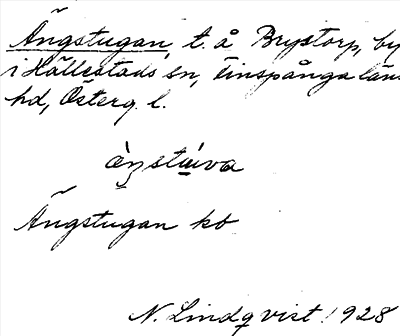 Ängstugan, t. å Brystorp, by
i Hällestads sn, Finspånga läns
hd, Österg. l.
äŋstúva
Ängstugan kb
N. Lindqvist 1928